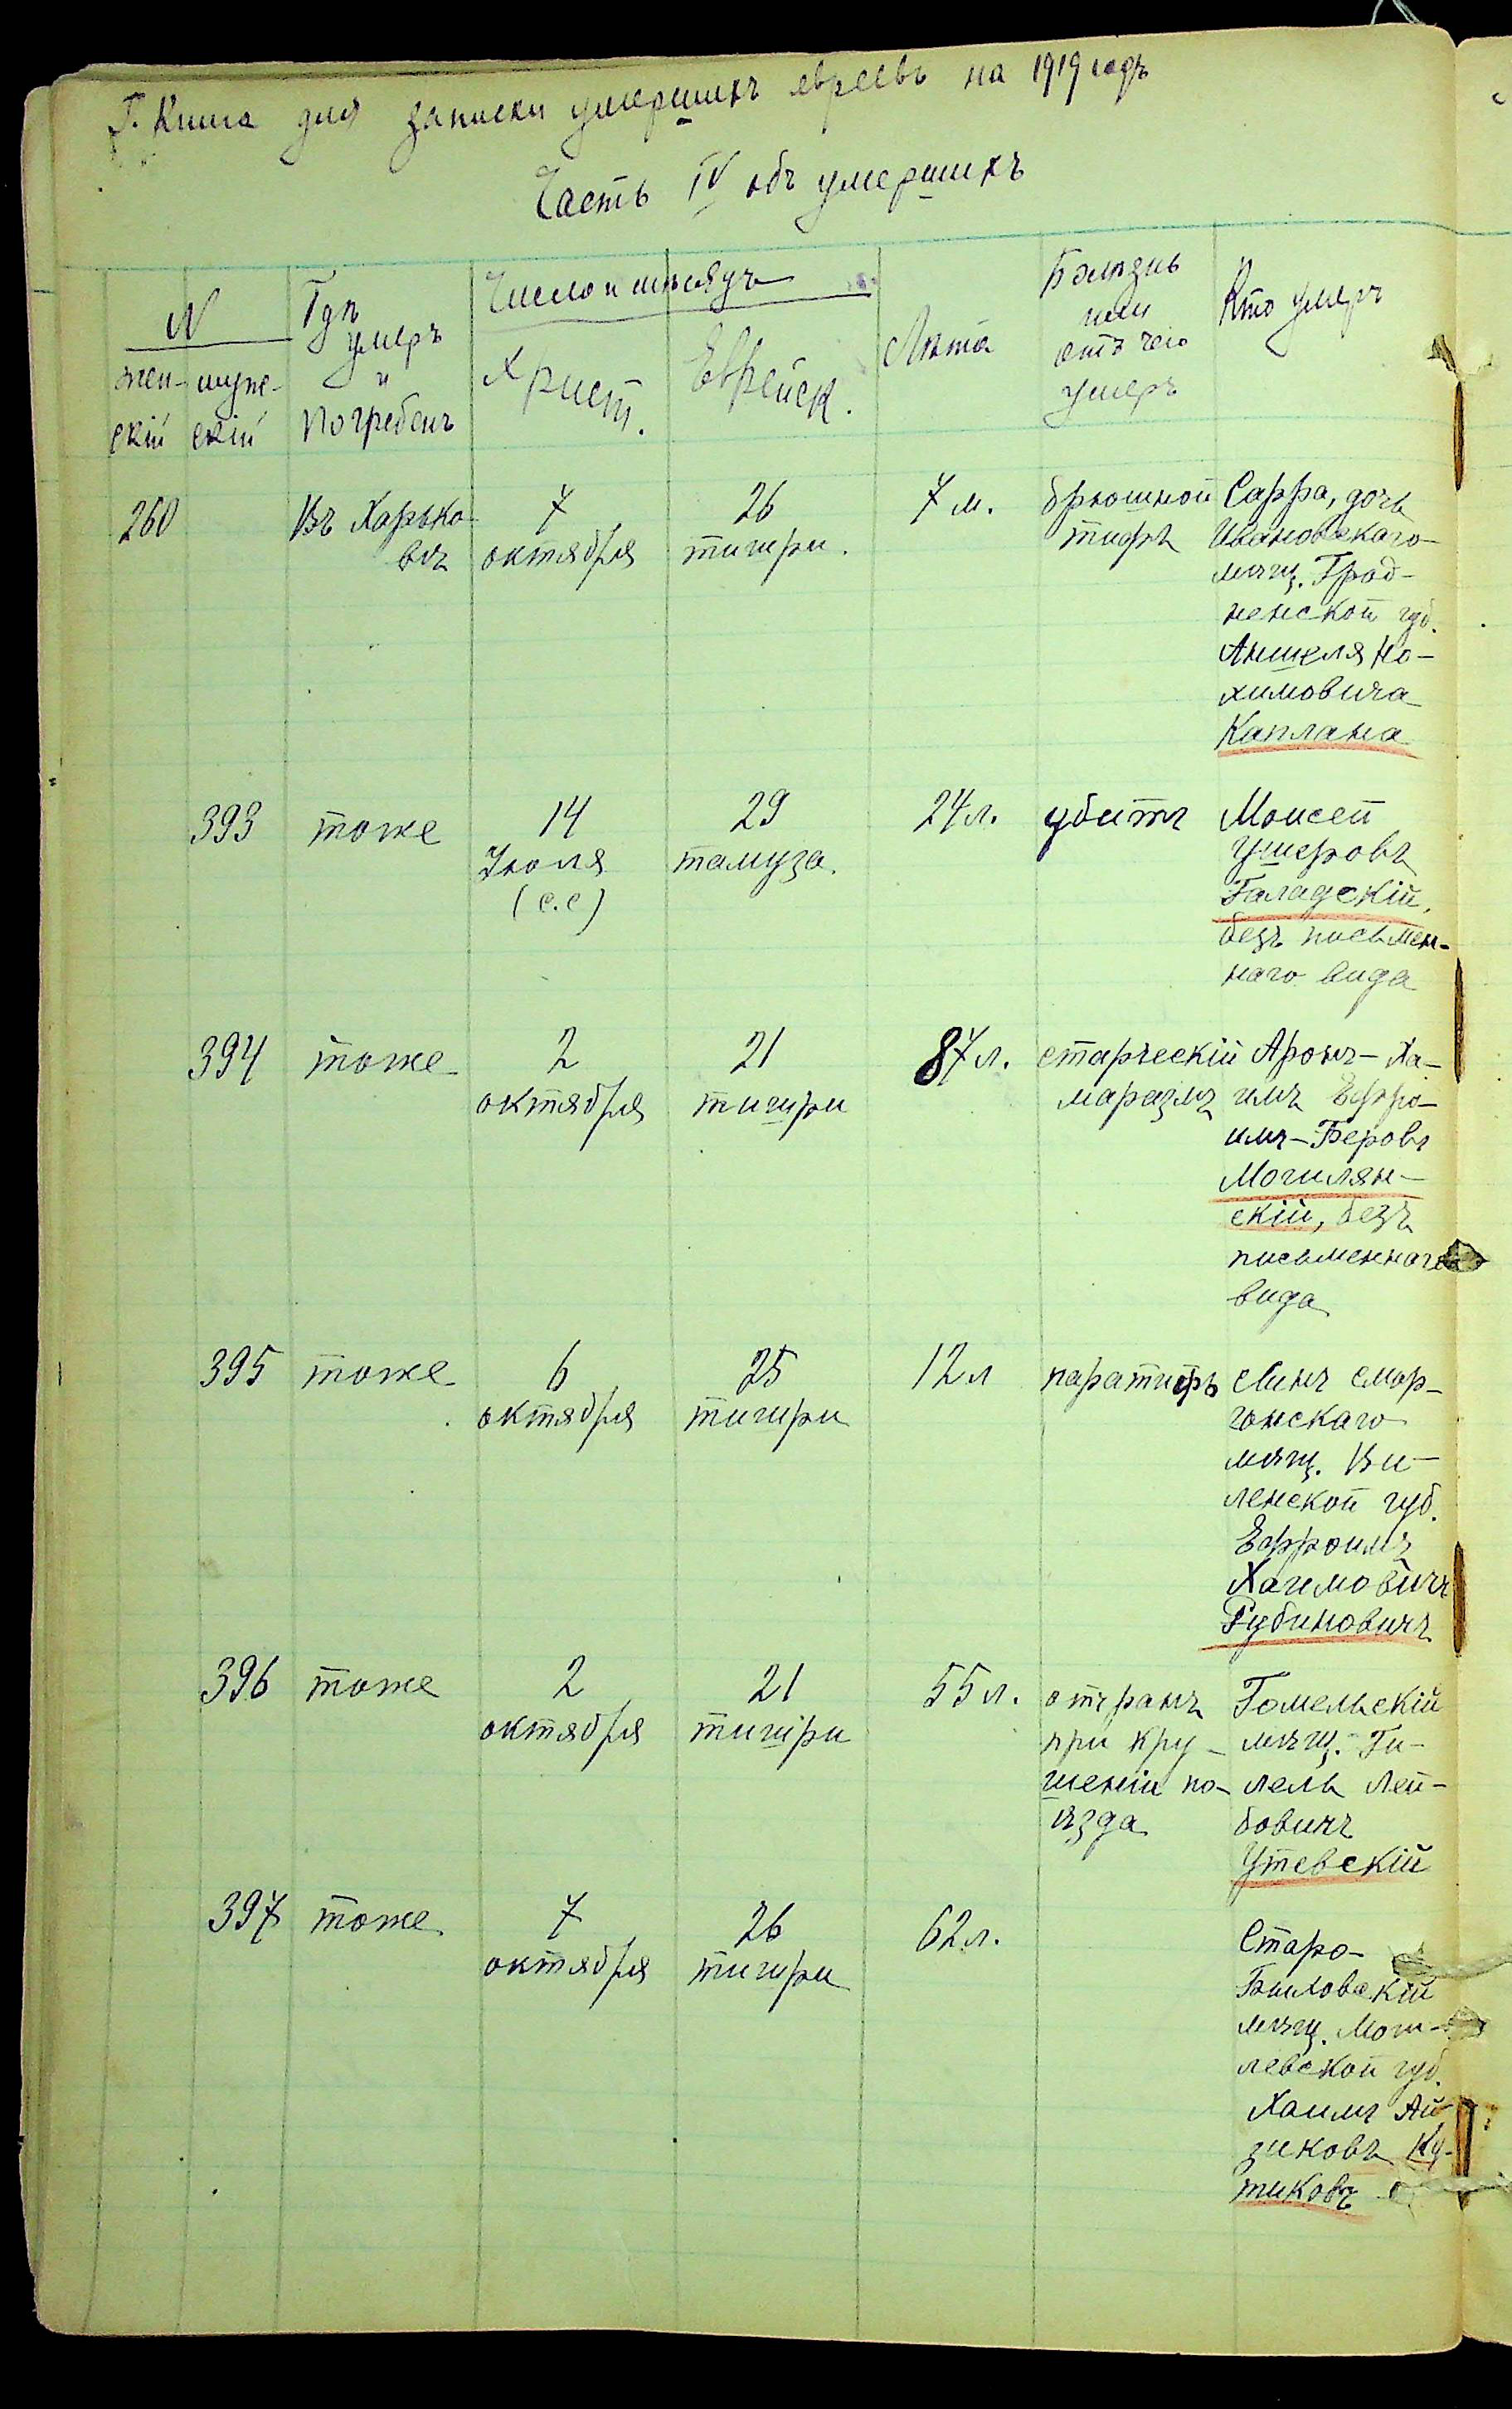 Г. Книга для записки умершихъ евреевъ на 1919 годъ
Часть IV объ умершихъ
N
жен-
скій
муже-
скій
Гдѣ
умеръ
и
погребенъ
Число и мѣсяцъ
Христ.
Еврейск.
Лѣта
Болѣзнь
или
отъ чего
умеръ
Кто умеръ
260
Въ Харько-
вѣ
7
октября
26
тишри.
7 м.
брюшной
тифъ
Сарра, дочь
Ивановскаго
мѣщ. Грод-
ненской губ.
Аншеля Но-
химовича
Каплана
393
тоже
14
Іюля
(с.с)
29
тамуза.
24 л.
убитъ
Моисей
Ушеровъ
Галадскій,
безъ письмен-
наго вида
394
тоже
2
октября
21
тишри
87 л.
старческій
маразмъ
Аронъ-Ха-
имъ Ефро-
имъ-Беровъ
Могилян-
скій, безъ
письменнаго
вида
395
тоже
6
октября
25
тишри
12 л
паратифъ
сынъ Смор-
гонскаго
мѣщ. Ви-
ленской губ.
Ефроимъ
Хаимовичъ
Рубиновичъ
396
тоже
2
октября
21
тишри
55 л.
отъ ранъ
при кру-
шеніи по-
ѣзда
Гомельскій
мѣщ. Ги-
лель Лей-
бовичъ
Утевскій
397
тоже
7
октября
26
тишри
62 л.
Старо-
Быховскій
мѣщ. Моги-
левской губ.
Хаимъ Ай-
зиковъ Ку-
тиковъ